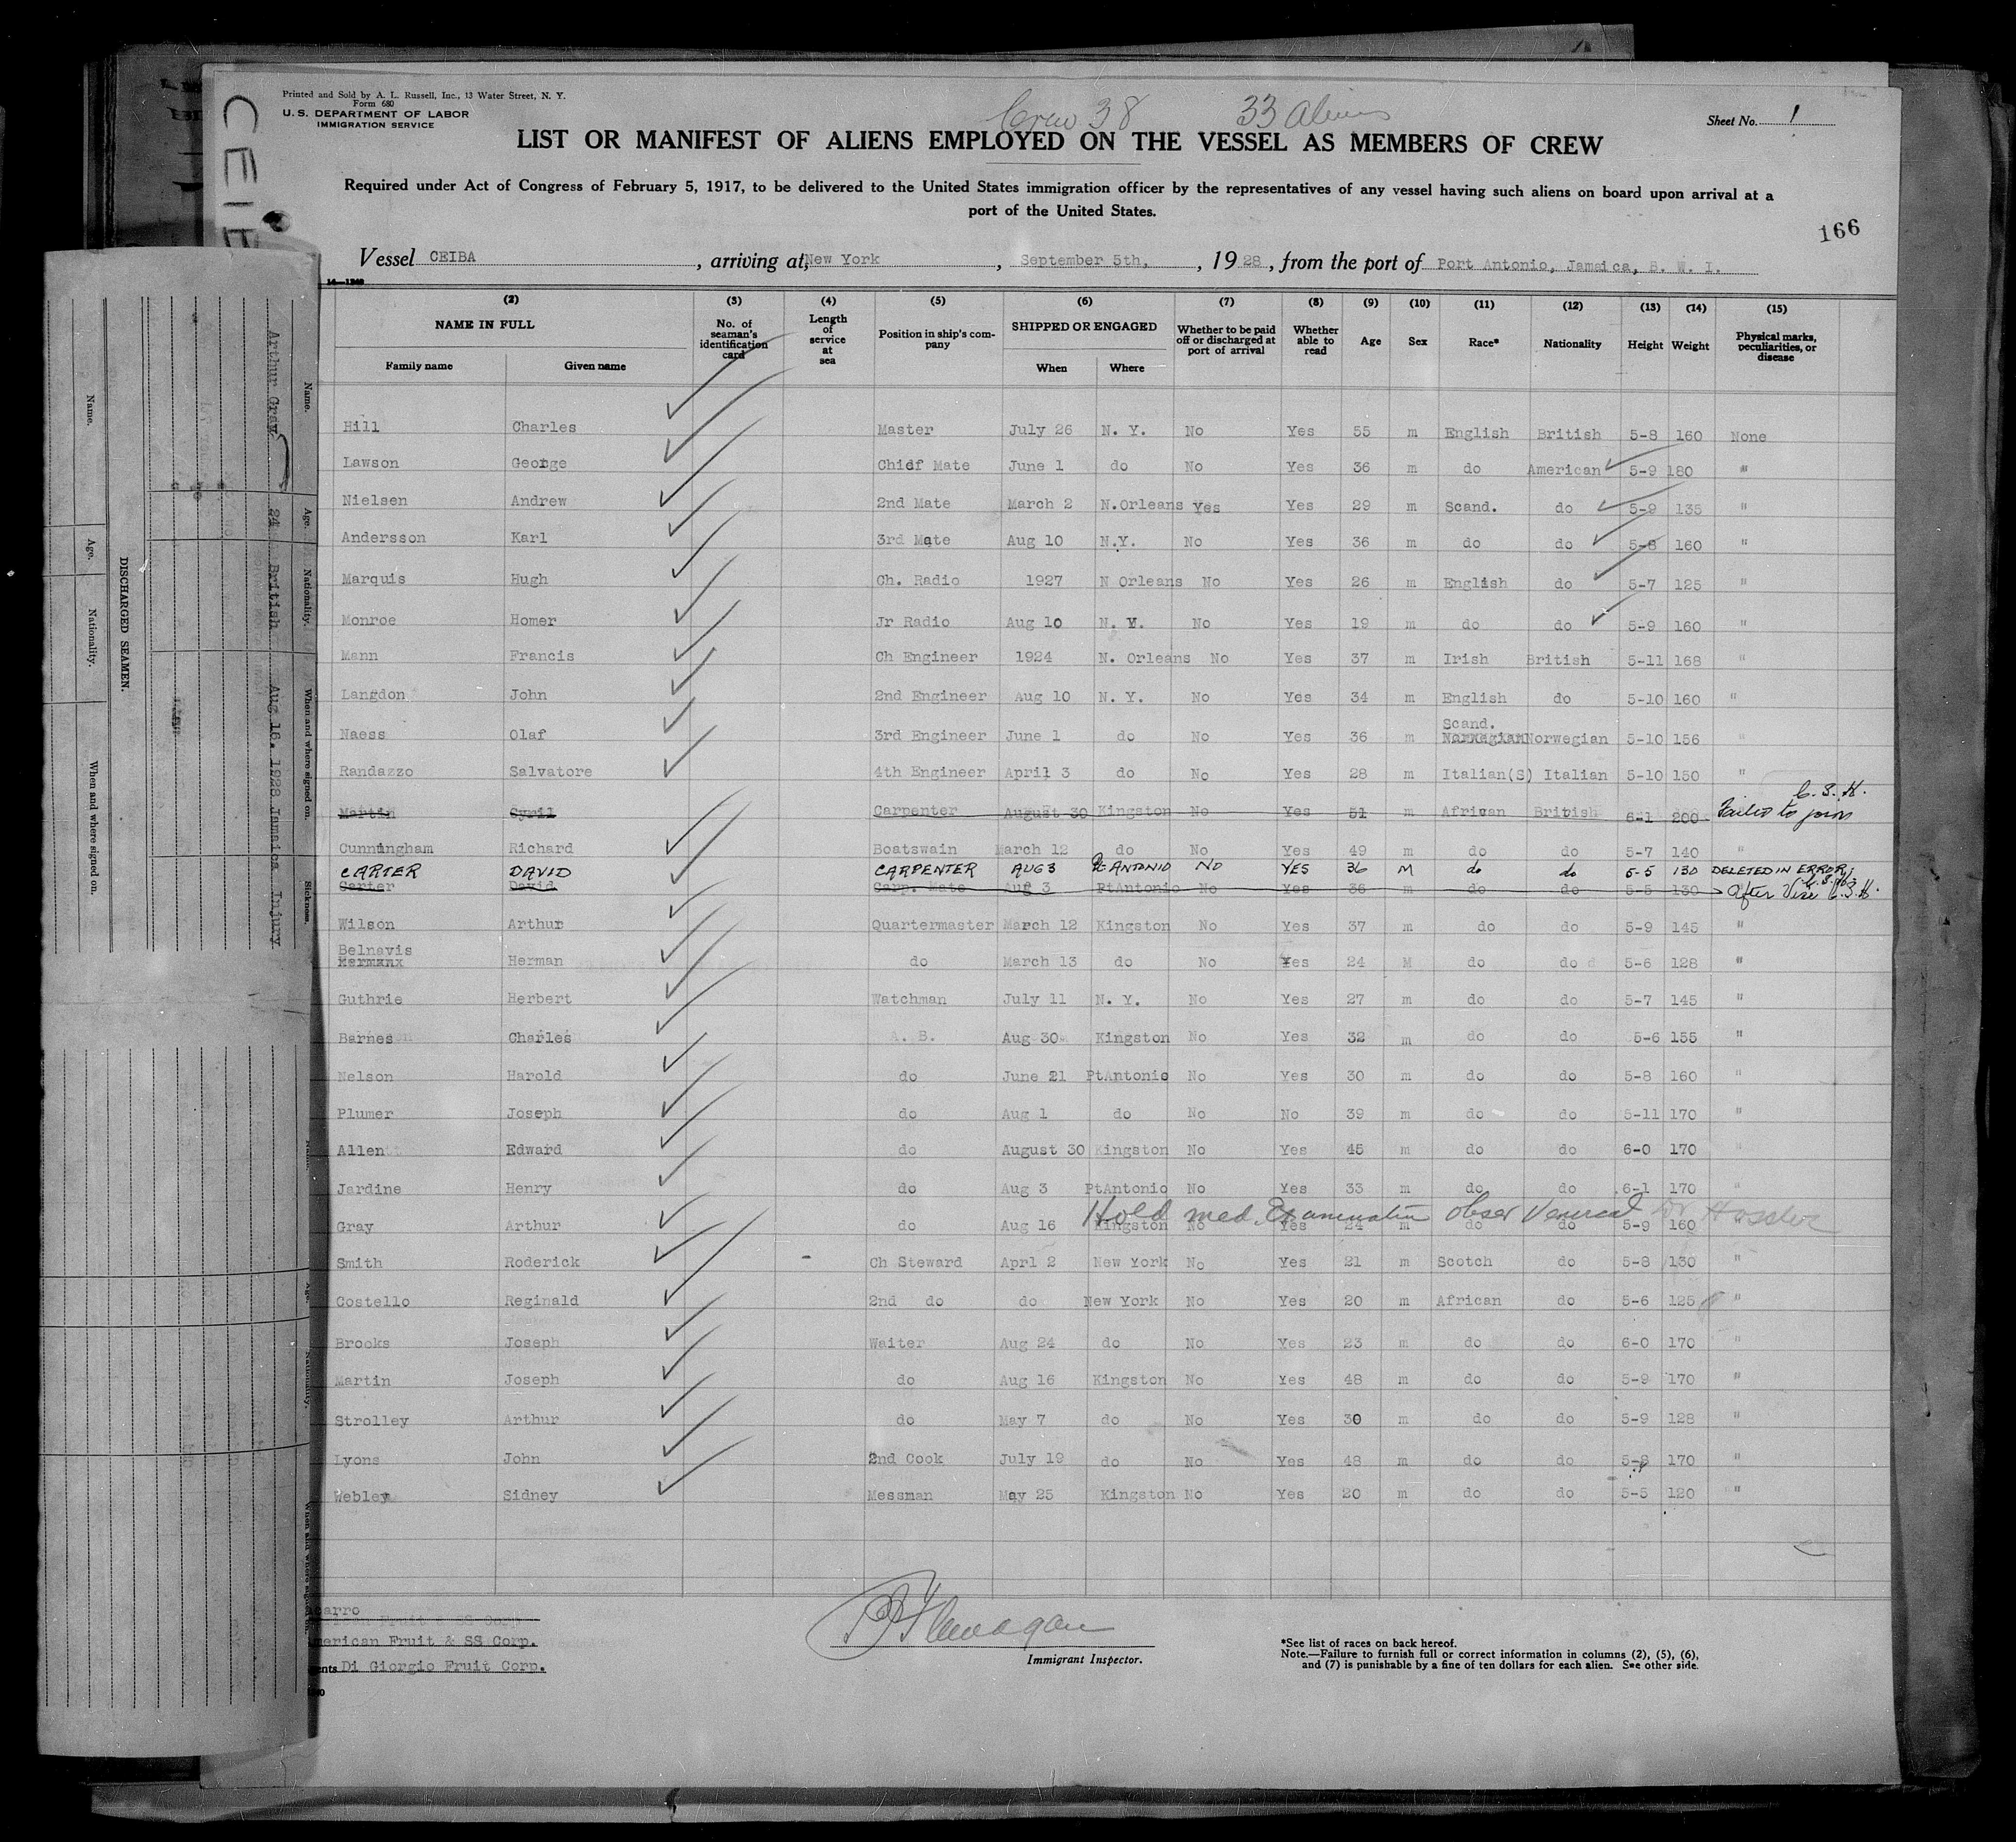 CEIB
Printed and Sold by A. L. Russell, Inc., 13 Water Street, N. Y.
Form 680
U. S. DEPARTMENT OF LABOR
IMMIGRATION SERVICE
Crew 38 33 Aliens
Sheet No. 1
LIST OR MANIFEST OF ALIENS EMPLOYED ON THE VESSEL AS MEMBERS OF CREW
Required under Act of Congress of February 5, 1917, to be delivered to the United States immigration officer by the representatives of any vessel having such aliens on board upon arrival at a
port of the United States.
166
Vessel CEIBA, arriving at, New York, September 5th, 1928, from the port of Port Antonio, Jamaica, B. W. I.
(2) (3) (4) (5) (6) (7) (8) (9) (10) (11) (12) (13) (14) (15)
NAME IN FULL No. of seaman's identification card Length of service at sea Position in ship's company SHIPPED OR ENGAGED Whether to be paid off or discharged at port of arrival Whether able to read Age Sex Race* Nationality Height Weight Physical marks, peculiarities, or disease
Family name Given name When Where
Hill Charles Master July 26 N. Y. No Yes 55 m English British 5-8 160 None
Lawson George Chief Mate June 1 do No Yes 36 m do American 5-9 180 "
Nielsen Andrew 2nd Mate March 2 N.Orleans Yes Yes 29 m Scand. do 5-9 135 "
Andersson Karl 3rd Mate Aug 10 N.Y. No Yes 36 m do do 5-8 160 "
Marquis Hugh Ch. Radio 1927 N Orleans No Yes 26 m English do 5-7 125 "
Monroe Homer Jr Radio Aug 10 N. Y. No Yes 19 m do do 5-9 160 "
Mann Francis Ch Engineer 1924 N. Orleans No Yes 37 m Irish British 5-11 168 "
Langdon John 2nd Engineer Aug 10 N. Y. No Yes 34 m English do 5-10 160 "
Scand.
Naess Olaf 3rd Engineer June 1 do No Yes 36 m Norwegian Norwegian 5-10 156 "
Randazzo Salvatore 4th Engineer April 3 do No Yes 28 m Italian(S) Italian 5-10 150 "
C. S. H.
Martin Cyril Carpenter August 30 Kingston No Yes 51 m African British 6-1 200 Failed to join
Cunningham Richard Boatswain March 12 do No Yes 49 m do do 5-7 140 "
CARTER DAVID CARPENTER AUG 3 Pt ANTONIO NO YES 36 M do do 5-5 130 DELETED IN ERROR;
Carter David Carp. Mate Aug 3 PtAntonio No Yes 36 m do do 5-5 130 after Vise C.S.H.
Wilson Arthur Quartermaster March 12 Kingston No Yes 37 m do do 5-9 145 "
Belnavis
Hermanx Herman do March 13 do No Yes 24 M do do 5-6 128 "
Guthrie Herbert Watchman July 11 N. Y. No Yes 27 m do do 5-7 145 "
Barnes Charles A. B. Aug 30 Kingston No Yes 32 m do do 5-6 155 "
Nelson Harold do June 21 PtAntonio No Yes 30 m do do 5-8 160 "
Plumer Joseph do Aug 1 do No No 39 m do do 5-11 170 "
Allen Edward do August 30 Kingston No Yes 45 m do do 6-0 170 "
Jardine Henry do Aug 3 PtAntonio No Yes 33 m do do 6-1 170 "
Hold med. Examination obser Venereal Dr Hassler
Gray Arthur do Aug 16 Kingston No Yes 24 m do do 5-9 160
Smith Roderick Ch Steward Aprl 2 New York No Yes 21 m Scotch do 5-8 130 "
Costello Reginald 2nd do do New York No Yes 20 m African do 5-6 125 "
Brooks Joseph Waiter Aug 24 do No Yes 23 m do do 6-0 170 "
Martin Joseph do Aug 16 Kingston No Yes 48 m do do 5-9 170 "
Strolley Arthur do May 7 do No Yes 30 m do do 5-9 128 "
Lyons John 2nd Cook July 19 do No Yes 48 m do do 5-8 170 "
Webley Sidney Messman May 25 Kingston No Yes 20 m do do 5-5 120 "
carro
American Fruit & SS Corp.
ents Di Giorgio Fruit Corp.
Flanagan
Immigrant Inspector.
*See list of races on back hereof.
Note.—Failure to furnish full or correct information in columns (2), (5), (6),
and (7) is punishable by a fine of ten dollars for each alien. See other side.
DISCHARGED SEAMEN.
Name. Age. Nationality. When and where signed on.
Name. Age. Nationality. When and where signed on. Sickness.
Arthur Gray. 24 British Aug 16. 1928 Jamaica Injury